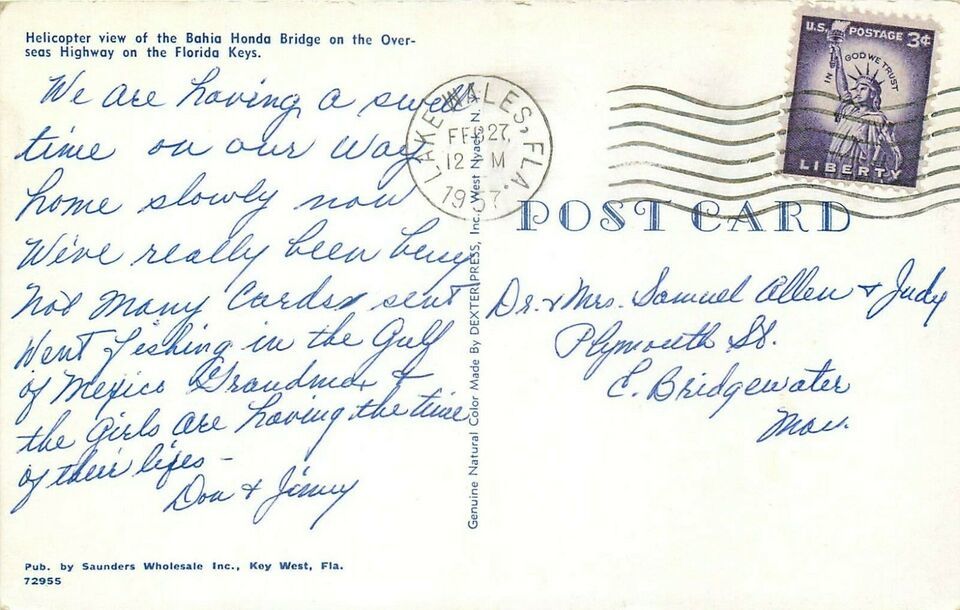 Helicopter view of the Bahia Honda Bridge on the Over-
seas Highway on the Florida Keys.
We are having a swell
time on our way
home slowly now
We've really been busy
Not many Cards sent
Went fishing in the Gulf
of Mexico Grandma &
the Girls are having the time
of their lifes -
Don & Jinny
Pub. by Saunders Wholesale Inc., Key West, Fla.
72955
Genuine Natural Color Made By DEXTER PRESS, Inc., West Nyack, N.
LAKE WALES, FLA.
FEB 27,
12 M
1957
U.S. POSTAGE 3¢
IN GOD WE TRUST
LIBERTY
POST CARD
Dr. & Mrs. Samuel Allen & Judy
Plymouth St.
E. Bridgewater
Mass.